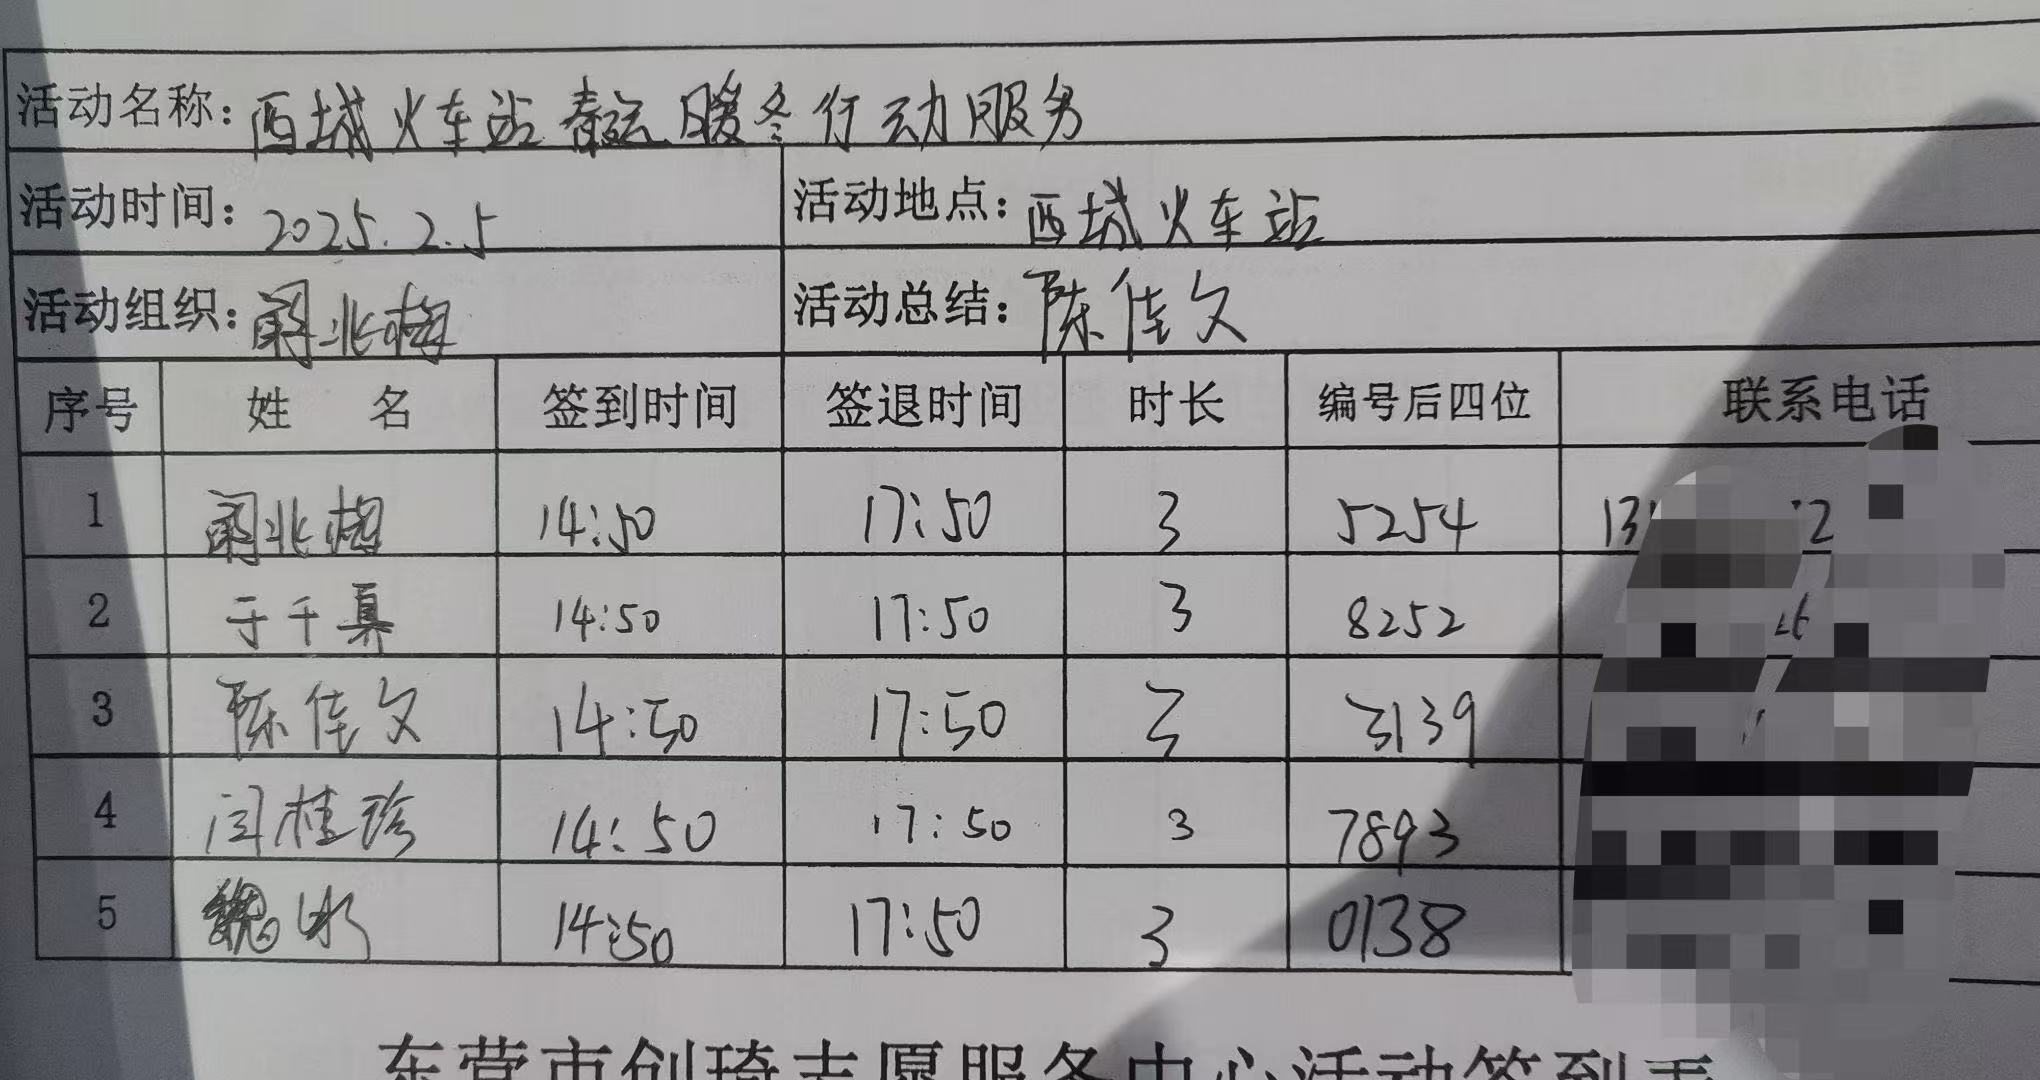 活动名称：西城火车站春运暖冬行动服务
活动时间：2025.2.5 活动地点：西城火车站
活动组织：北梅 活动总结：陈佳文
序号 姓名 签到时间 签退时间 时长 编号后四位 联系电话
1 北梅 14:50 17:50 3 5254 13
2 于千真 14:50 17:50 3 8252
3 陈佳文 14:50 17:50 3 3139
4 闫桂珍 14:50 17:50 3 7893
5 魏冰 14:50 17:50 3 0138
东营市创琦志愿服务中心活动签到表